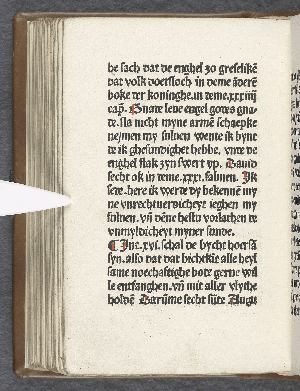 he sach dat de enghel zo greselikē
dat volk doetsloch in deme āderē
boke der koninghe. in deme .xxiiij
cap̄. Gnate leue engel gotes gna
de. sla nicht myne armē schaepke
nemen my suluen wente ik bynt
de ik ghesundighet hebbe. vnde de
enghel stak zyn swert vp. Dauid
secht ok in deme .xxxi. salmen. Ik
sete. here ik werde dy bekennē my
ne vnrechtuerdicheyt ieghen my
suluen. vn̄ deme hestu vorlathen de
vnmyldicheyt myner sunde.
¶ Int .xvi. schal de bycht horsā
syn. also dat dat bichtkīt alle heyl
same noechaftighe bote gerne wil
le entfanghen. vn̄ mit aller vlythe
holdē Darūme secht sūte Augu